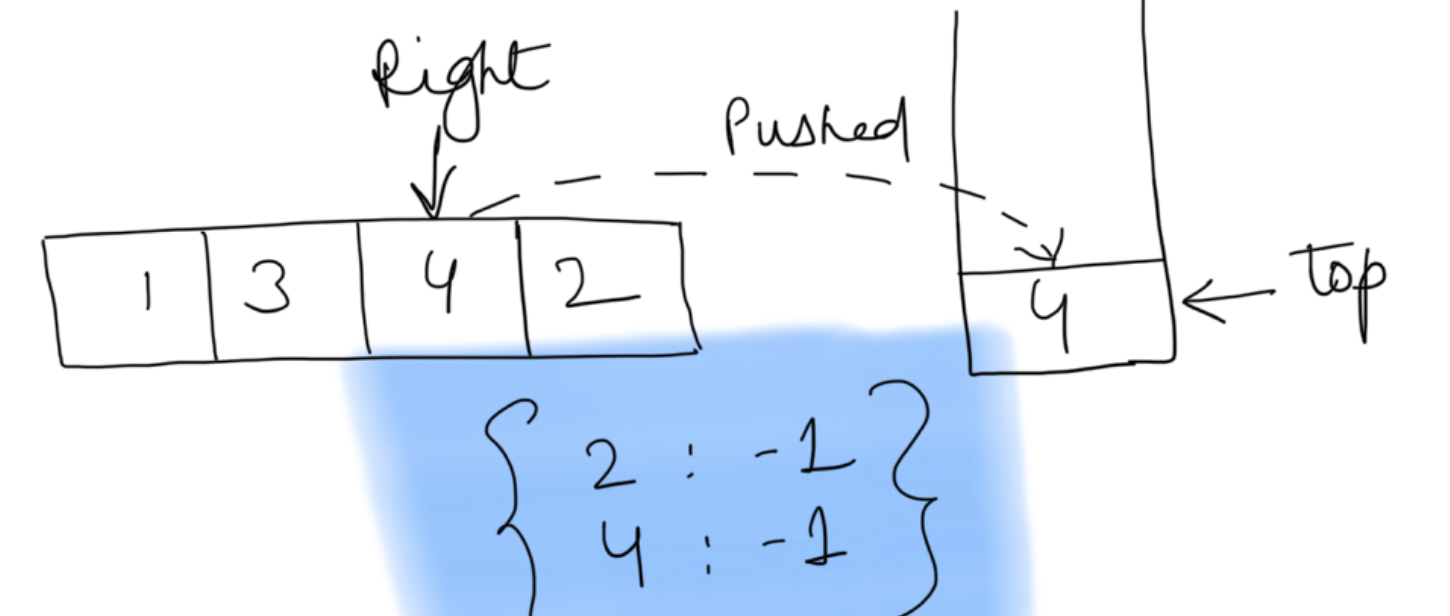 Right
Pushed
1 3 4 2
4
Top
{ 2 : -1
4 : -1 }